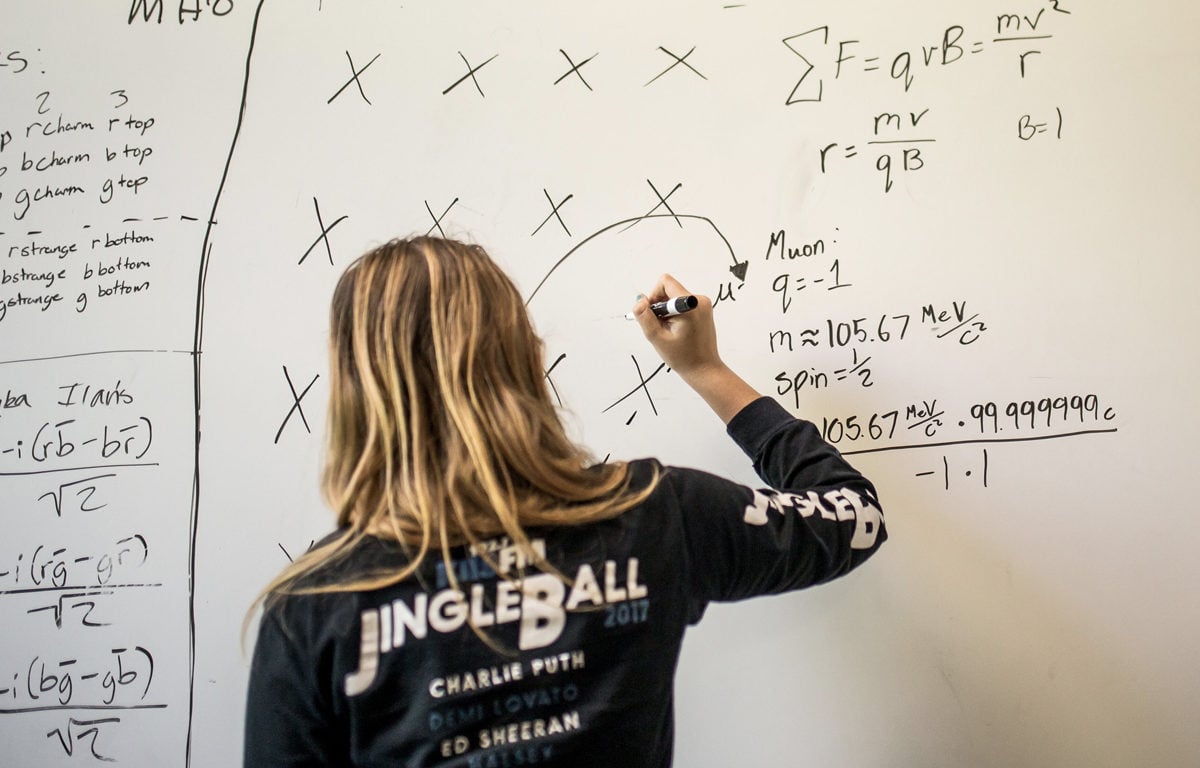 2 3
rcharm r top
bcharm b top
gcharm g top
rstrange r bottom
bstrange b bottom
gstrange g bottom
-i(rb̄-br̄)
√2
-i(rḡ-gr̄)
√2
-i(bḡ-gb̄)
√2
X X X X
X X X X
X X
μ⁻
∑F=qvB=mv²/r
r=mv/qB
B=1
Muon:
q=-1
m≈105.67 MeV/c²
spin=1/2
105.67 MeV/c² · 99.999999c
-1·1
JINGLEB
FM
JINGLEBALL
2017
CHARLIE PUTH
DEMI LOVATO
ED SHEERAN
HALSEY